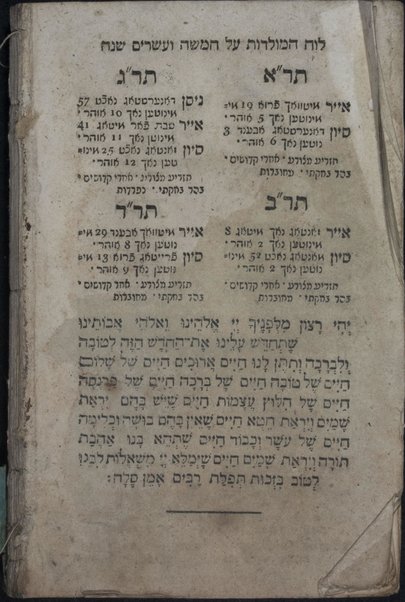 לוח המולדות על חמשה ועשרים שנה
תר״א
אייר מיטוואך פרוא 19 מינ׳
מינוטען נאך 5 אוהר׳
סיון דאנערסטאג אבענד 3
מינוטען נאך 6 אוהר׳
תזריע מצורע׳ אחרי קדושים׳
בהר בחקתי׳ מחוברות
תר״ג
ניסן דאנערסטאג נאכט 57
מינוטען נאך 10 אוהר׳
אייר שבת פֿאר מיטאג 41
מינוטען נאך 11 אוהר׳
סיון זאנטאג נאכט 25 מינו׳
טען נאך 12 אוהר׳
תזריע מצורע׳ אחרי קדושים׳
בהר בחקתי׳ נפרדות
תר״ב
אייר זאנטאג נאך מיטאג 8
מינוטען נאך 2 אוהר׳
סיון מאנטאג נאכט 52 מינו׳
נוטען נאך 2 אוהר׳
תזריע מצורע׳ אחרי קדושים׳
בהר בחקתי׳ מחוברות
תר״ד
אייר מיטוואך אבענד 29 מי׳
נוטען נאך 8 אוהר׳
סיון פרייטאג פרוא 13 מי׳
נוטען נאך 9 אוהר׳
תזריע מצורע׳ אחרי קדושים׳
בהר בחקתי׳ מחוברות
יְהִי רָצוֹן מִלְּפָנֶיךָ יְיָ אֱלֹהֵינוּ וֵאלֹהֵי אֲבוֹתֵינוּ
שֶׁתְּחַדֵּשׁ עָלֵינוּ אֶת־הַחֹדֶשׁ הַזֶּה לְטוֹבָה
וְלִבְרָכָה וְתִתֶּן לָנוּ חַיִּים אֲרוּכִּים חַיִּים שֶׁל שָׁלוֹם
חַיִּים שֶׁל טוֹבָה חַיִּים שֶׁל בְּרָכָה חַיִּים שֶׁל פַּרְנָסָה
חַיִּים שֶׁל חִלּוּץ עֲצָמוֹת חַיִּים שֶׁיֵּשׁ בָּהֶם יִרְאַת
שָׁמַיִם וְיִרְאַת חֵטְא חַיִּים שֶׁאֵין בָּהֶם בּוּשָׁה וּכְלִימָּה
חַיִּים שֶׁל עֹשֶׁר וְכָבוֹד חַיִּים שֶׁתְּהֵא בָנוּ אַהֲבַת
תּוֹרָה וְיִרְאַת שָׁמַיִם חַיִּים שֶׁיִּמָּלֵא יְיָ מִשְׁאֲלוֹת לִבֵּנוּ
לְטוֹב בִּזְכוּת תְּפִלַּת רַבִּים אָמֵן סֶלָה: